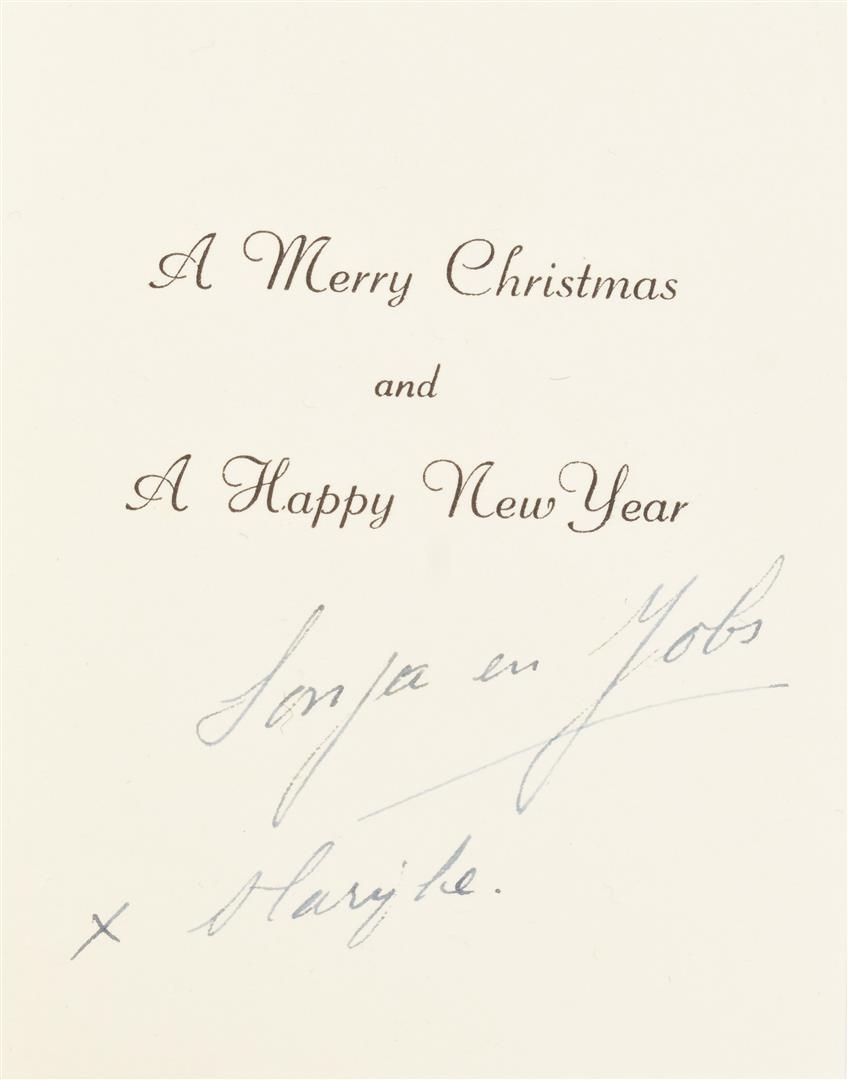 A Merry Christmas
and
A Happy New Year
Sonja en Jobs
x Marijke.